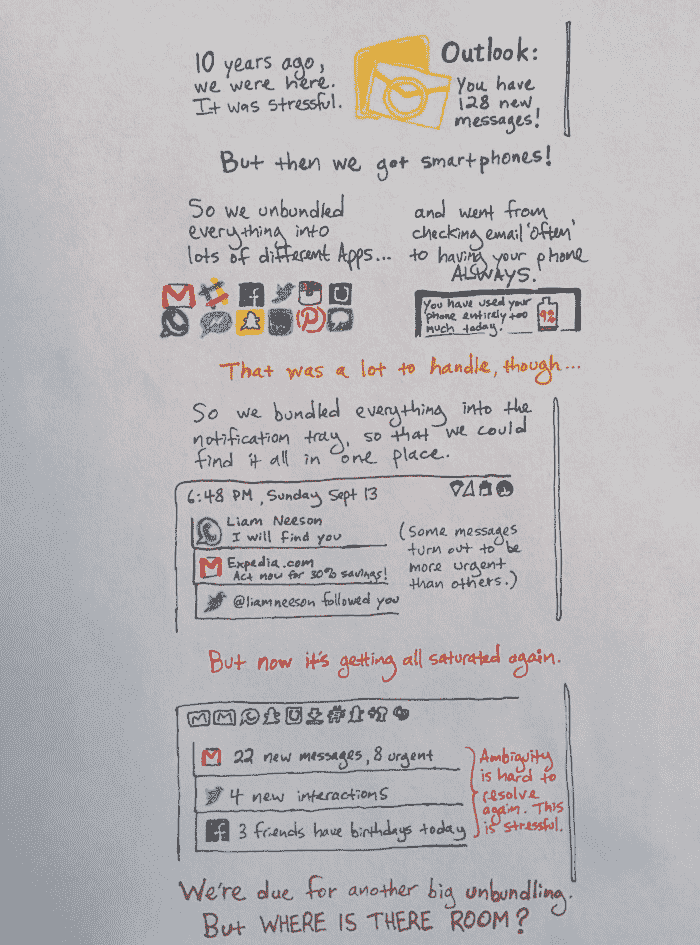 10 years ago,
we were here.
It was stressful.
Outlook:
You have
128 new
messages!
But then we got smartphones!
So we unbundled
everything into
lots of different Apps...
and went from
checking email 'often'
to having your phone
ALWAYS.
You have used your
phone entirely too
much today!
9%
That was a lot to handle, though...
So we bundled everything into the
notification tray, so that we could
find it all in one place.
6:48 PM, Sunday Sept 13
Liam Neeson
I will find you
Expedia.com
Act now for 30% savings!
@liamneeson followed you
(Some messages
turn out to be
more urgent
than others.)
But now it's getting all saturated again.
22 new messages, 8 urgent
4 new interactions
3 friends have birthdays today
Ambiguity
is hard to
resolve
again. This
is stressful.
We're due for another big unbundling.
But WHERE IS THERE ROOM?